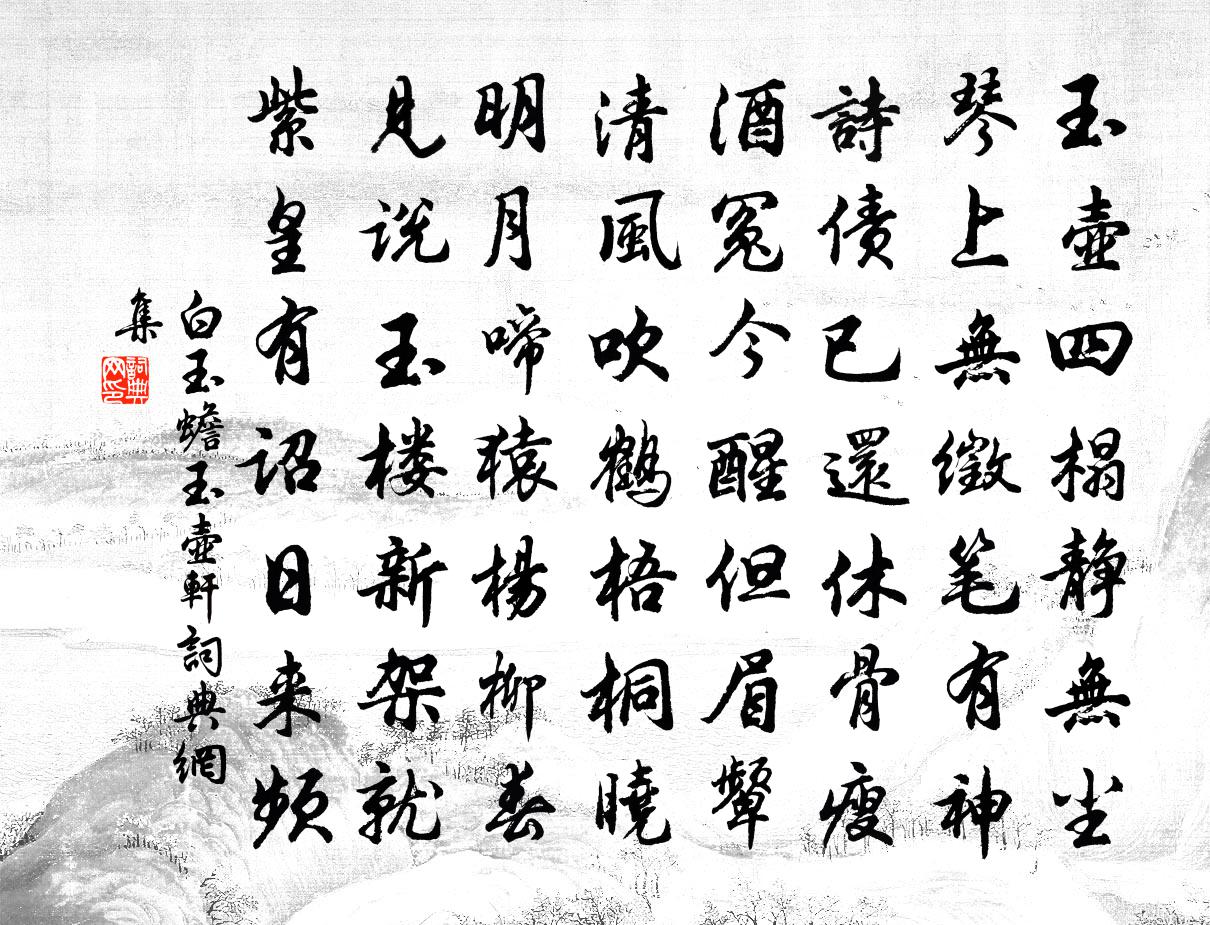 玉壺四榻静無尘
琴上無徽笔有神
詩债已還休骨瘦
酒冤今醒但眉顰
清風吹鶴梧桐曉
明月啼猿楊柳春
見说玉楼新架就
紫皇有诏日来频
白玉蟾玉壺軒詞典網
集
詞典網印